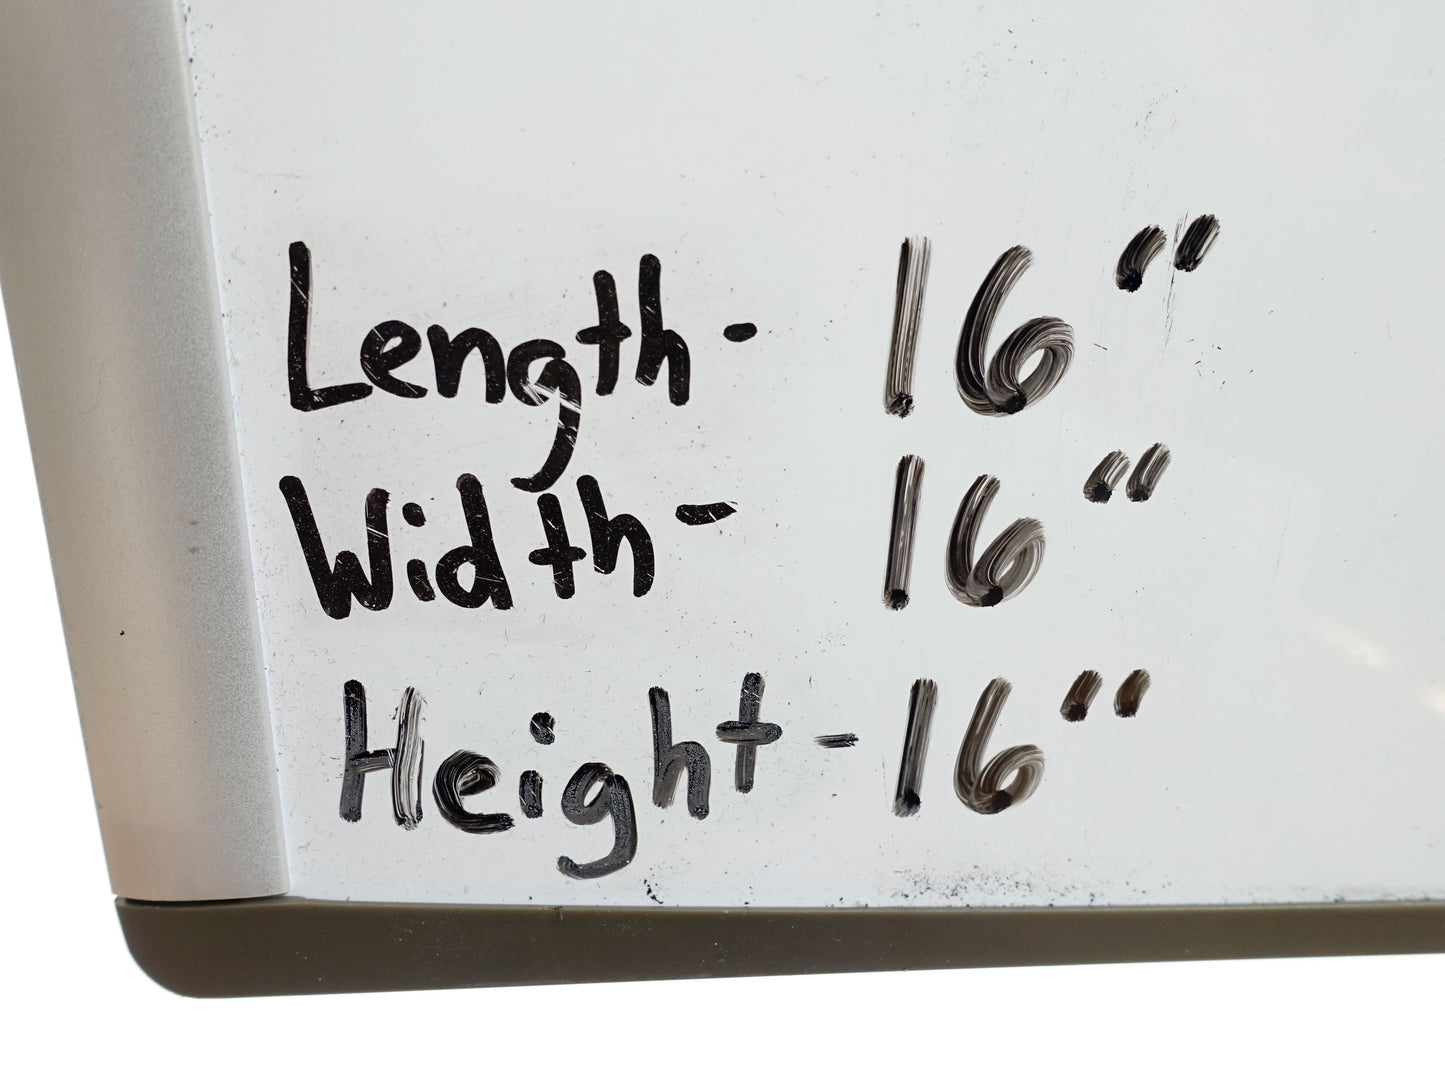 Length- 16"
Width- 16"
Height- 16"